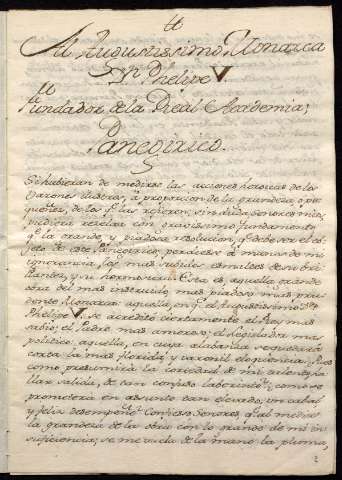 Al Augustissimo Monarca
Dn. Phelipe V
fundador de la Real Academia;
Panegirico.
Si hubieran de medirse las acciones heroicas de los
Varones ilustres, a proporcion de la grandeza, o pe-
queñez, de los qe. las refieren, sin duda, Señores mios,
pudiera rezelar con gravissimo fundamento,
qe. la grande, y piadosa resolucion, qe. debe ser el ob-
jeto de este Panegirico, perdiesse a manos de mi
ignorancia los mas subidos esmaltes de su bri-
llantez, y su hermosura. Esta es, aquella grande
obra del mas instruido, mas piadoso, mas pru-
dente Monarca: aquella, en qe. el Augustissimo Dn.
Phelipe V se acreditó ciertamente el Rey mas
sabio, el Padre mas amoroso, el Legislador mas
politico, aquella, en cuya alabanza se quedará
corta la mas florida, y varonil eloquencia. Pues
como presumirá la cortedad de mi talento, ha-
llar salida, de tan confuso laberinto, como se
prometerá en assunto tan elevado, un cabal
y feliz desempeño? Confiesso Señores, qe. al medir
la grandeza de la obra con lo grande de mi in-
suficiencia, se me cae de la mano la pluma,
2